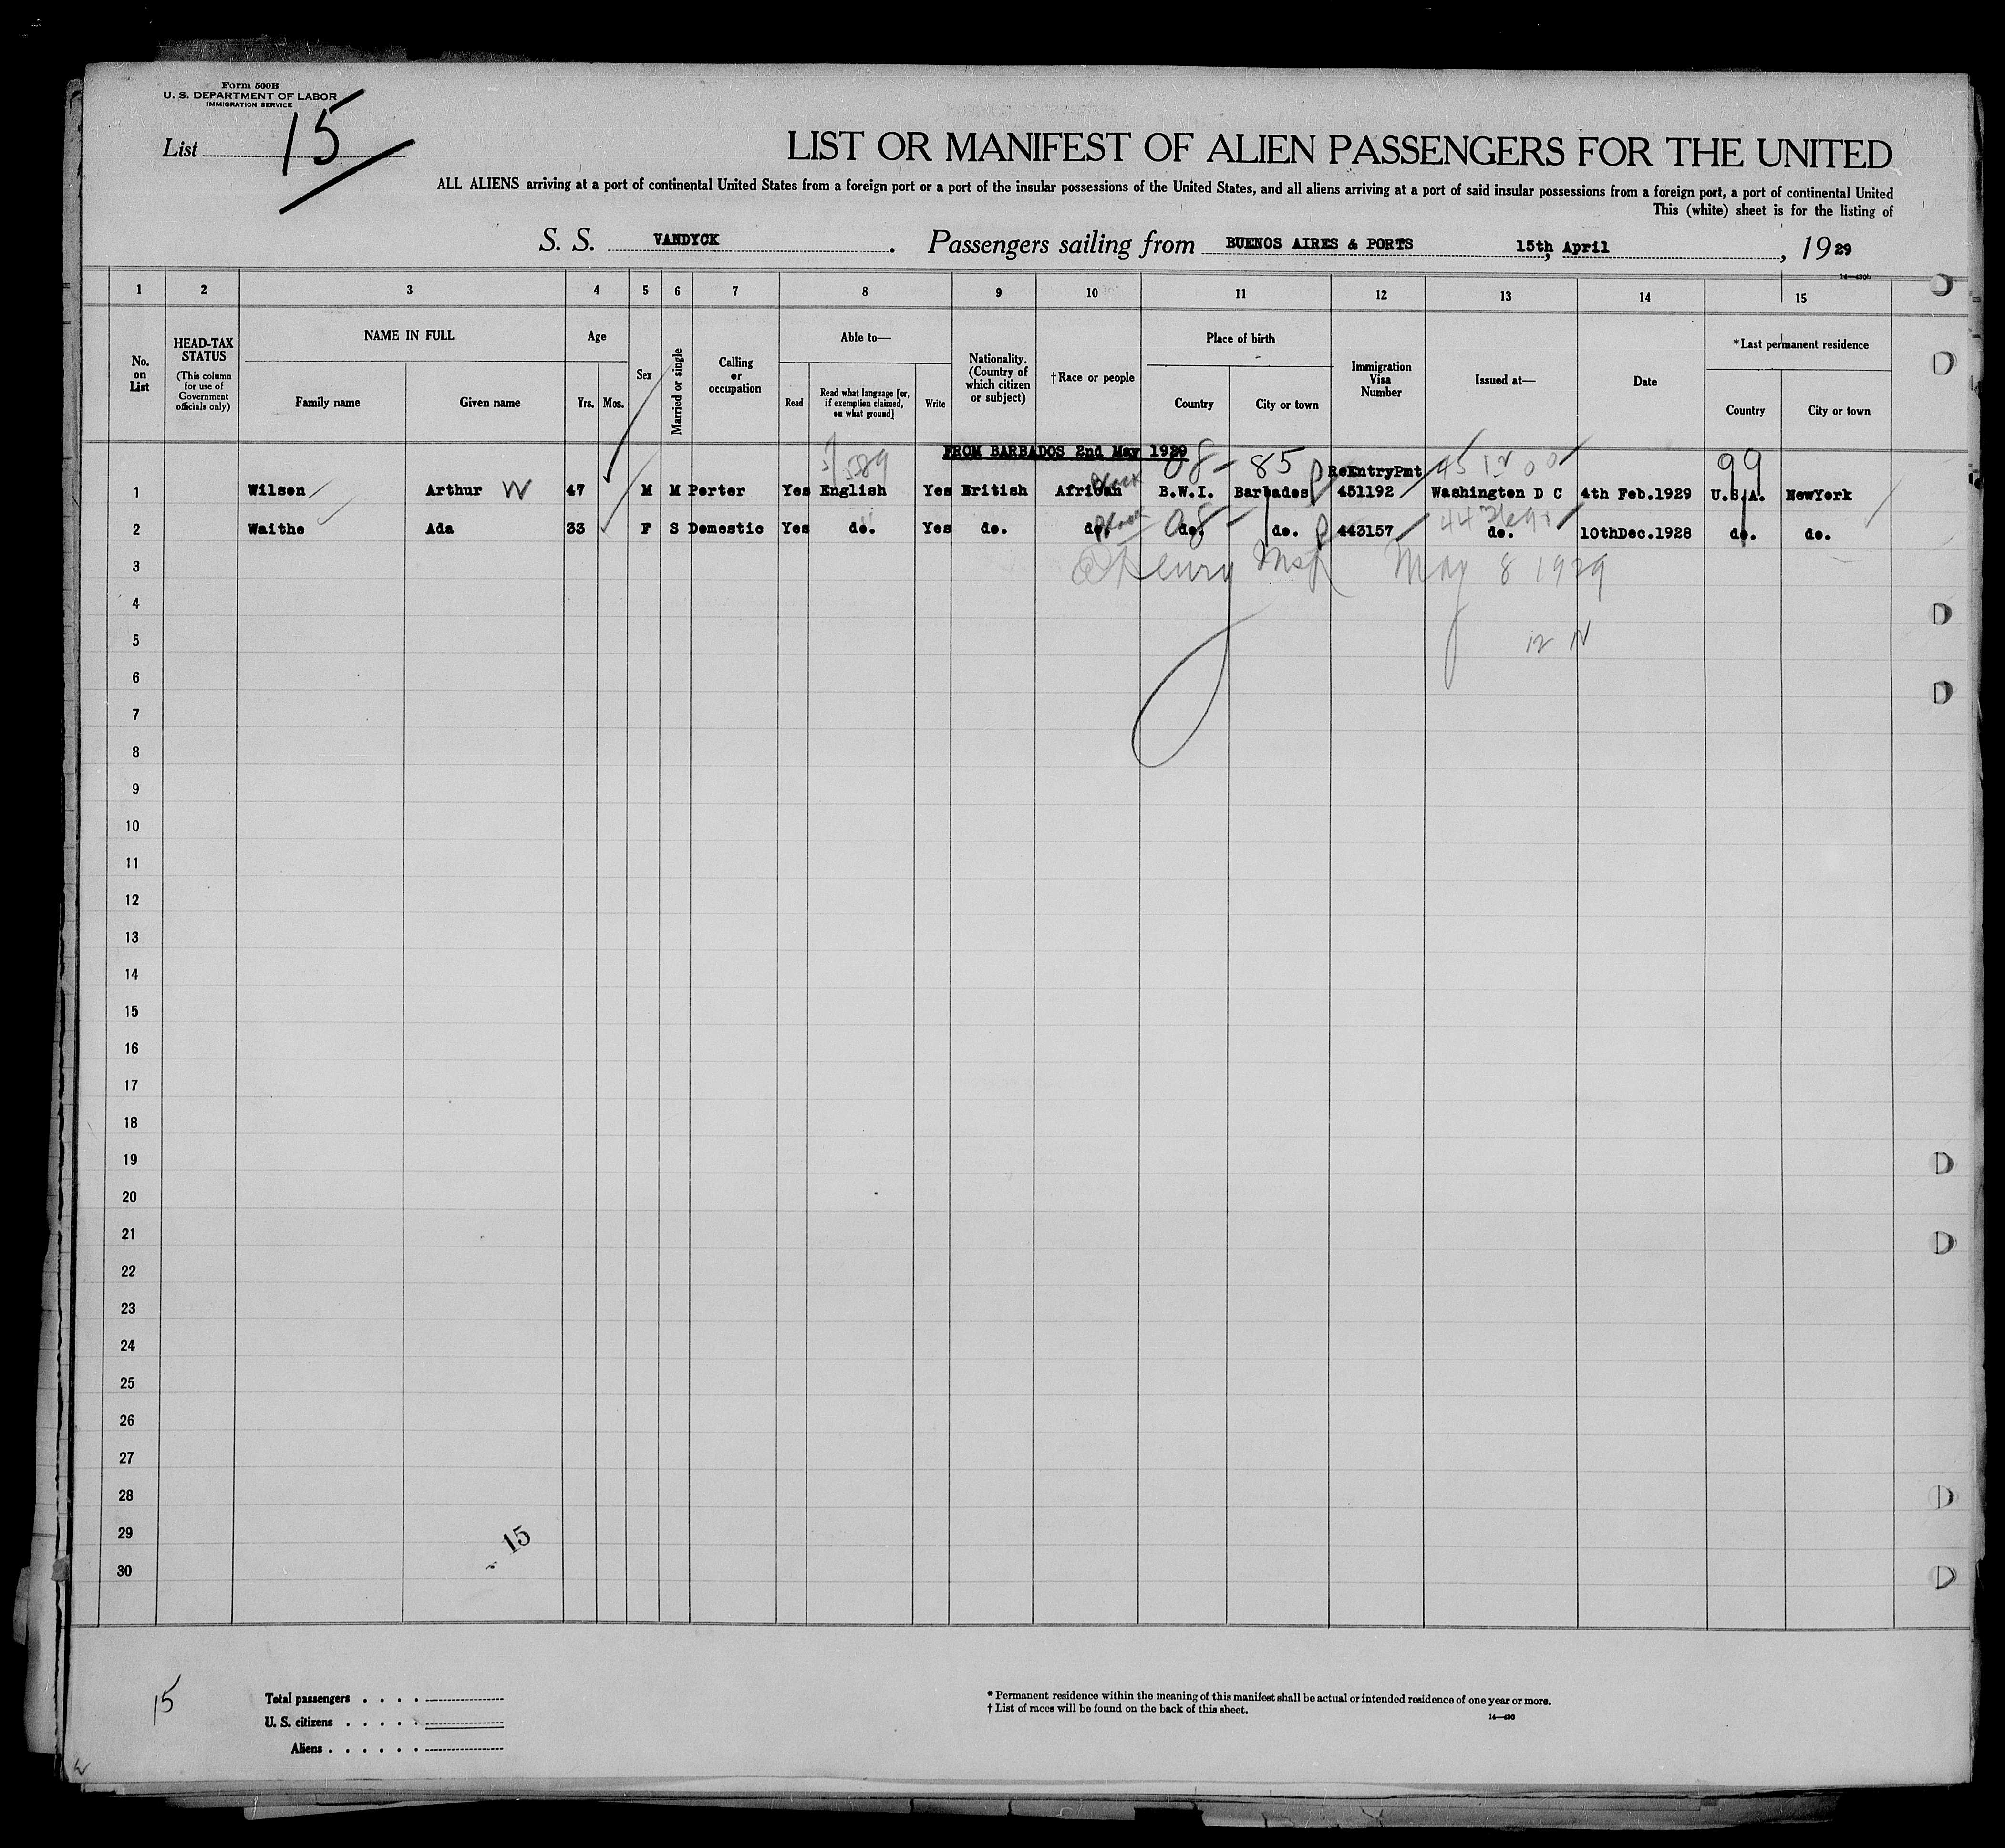 Form 500B
U. S. DEPARTMENT OF LABOR
IMMIGRATION SERVICE
List 15
LIST OR MANIFEST OF ALIEN PASSENGERS FOR THE UNITED
ALL ALIENS arriving at a port of continental United States from a foreign port or a port of the insular possessions of the United States, and all aliens arriving at a port of said insular possessions from a foreign port, a port of continental United
This (white) sheet is for the listing of
S. S. VANDYCK. Passengers sailing from BUENOS AIRES & PORTS 15th, April, 1929
14—430b
1 2 3 4 5 6 7 8 9 10 11 12 13 14 15
No. on List
HEAD-TAX STATUS (This column for use of Government officials only)
NAME IN FULL
Family name
Given name
Age
Yrs. Mos.
Sex
Married or single
Calling or occupation
Able to—
Read
Read what language [or, if exemption claimed, on what ground]
Write
Nationality. (Country of which citizen or subject)
†Race or people
Place of birth
Country
City or town
Immigration Visa Number
Issued at—
Date
*Last permanent residence
Country
City or town
FROM BARBADOS 2nd May 1929
08 - 85
99
ReEntryPmt
1 Wilson Arthur W 47 M M Porter Yes English Yes British African Black B.W.I. Barbados 451192 Washington D C 4th Feb.1929 U.S.A. NewYork
2 Waithe Ada 33 F S Domestic Yes do. Yes do. do. Black 08 - do. do. 443157 do. 10thDec.1928 do. do.
3 Henry Insp May 8 1929
4
5 12 N
6
7
8
9
10
11
12
13
14
15
16
17
18
19
20
21
22
23
24
25
26
27
28
29
30
15
15
Total passengers . . . .
U. S. citizens . . . . .
Aliens . . . . . .
* Permanent residence within the meaning of this manifest shall be actual or intended residence of one year or more.
† List of races will be found on the back of this sheet.
14—430